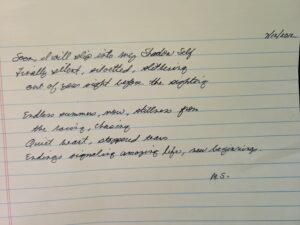 Soon, I will slip into my Shadow Self
Finally silent, selected, slithering
out of your sight before the sighting
Endless summer, now, stillness from
the racing, chasing
Quiet heart, stoppered tears
Endings signaling amazing life, new beginnings.
M.S.